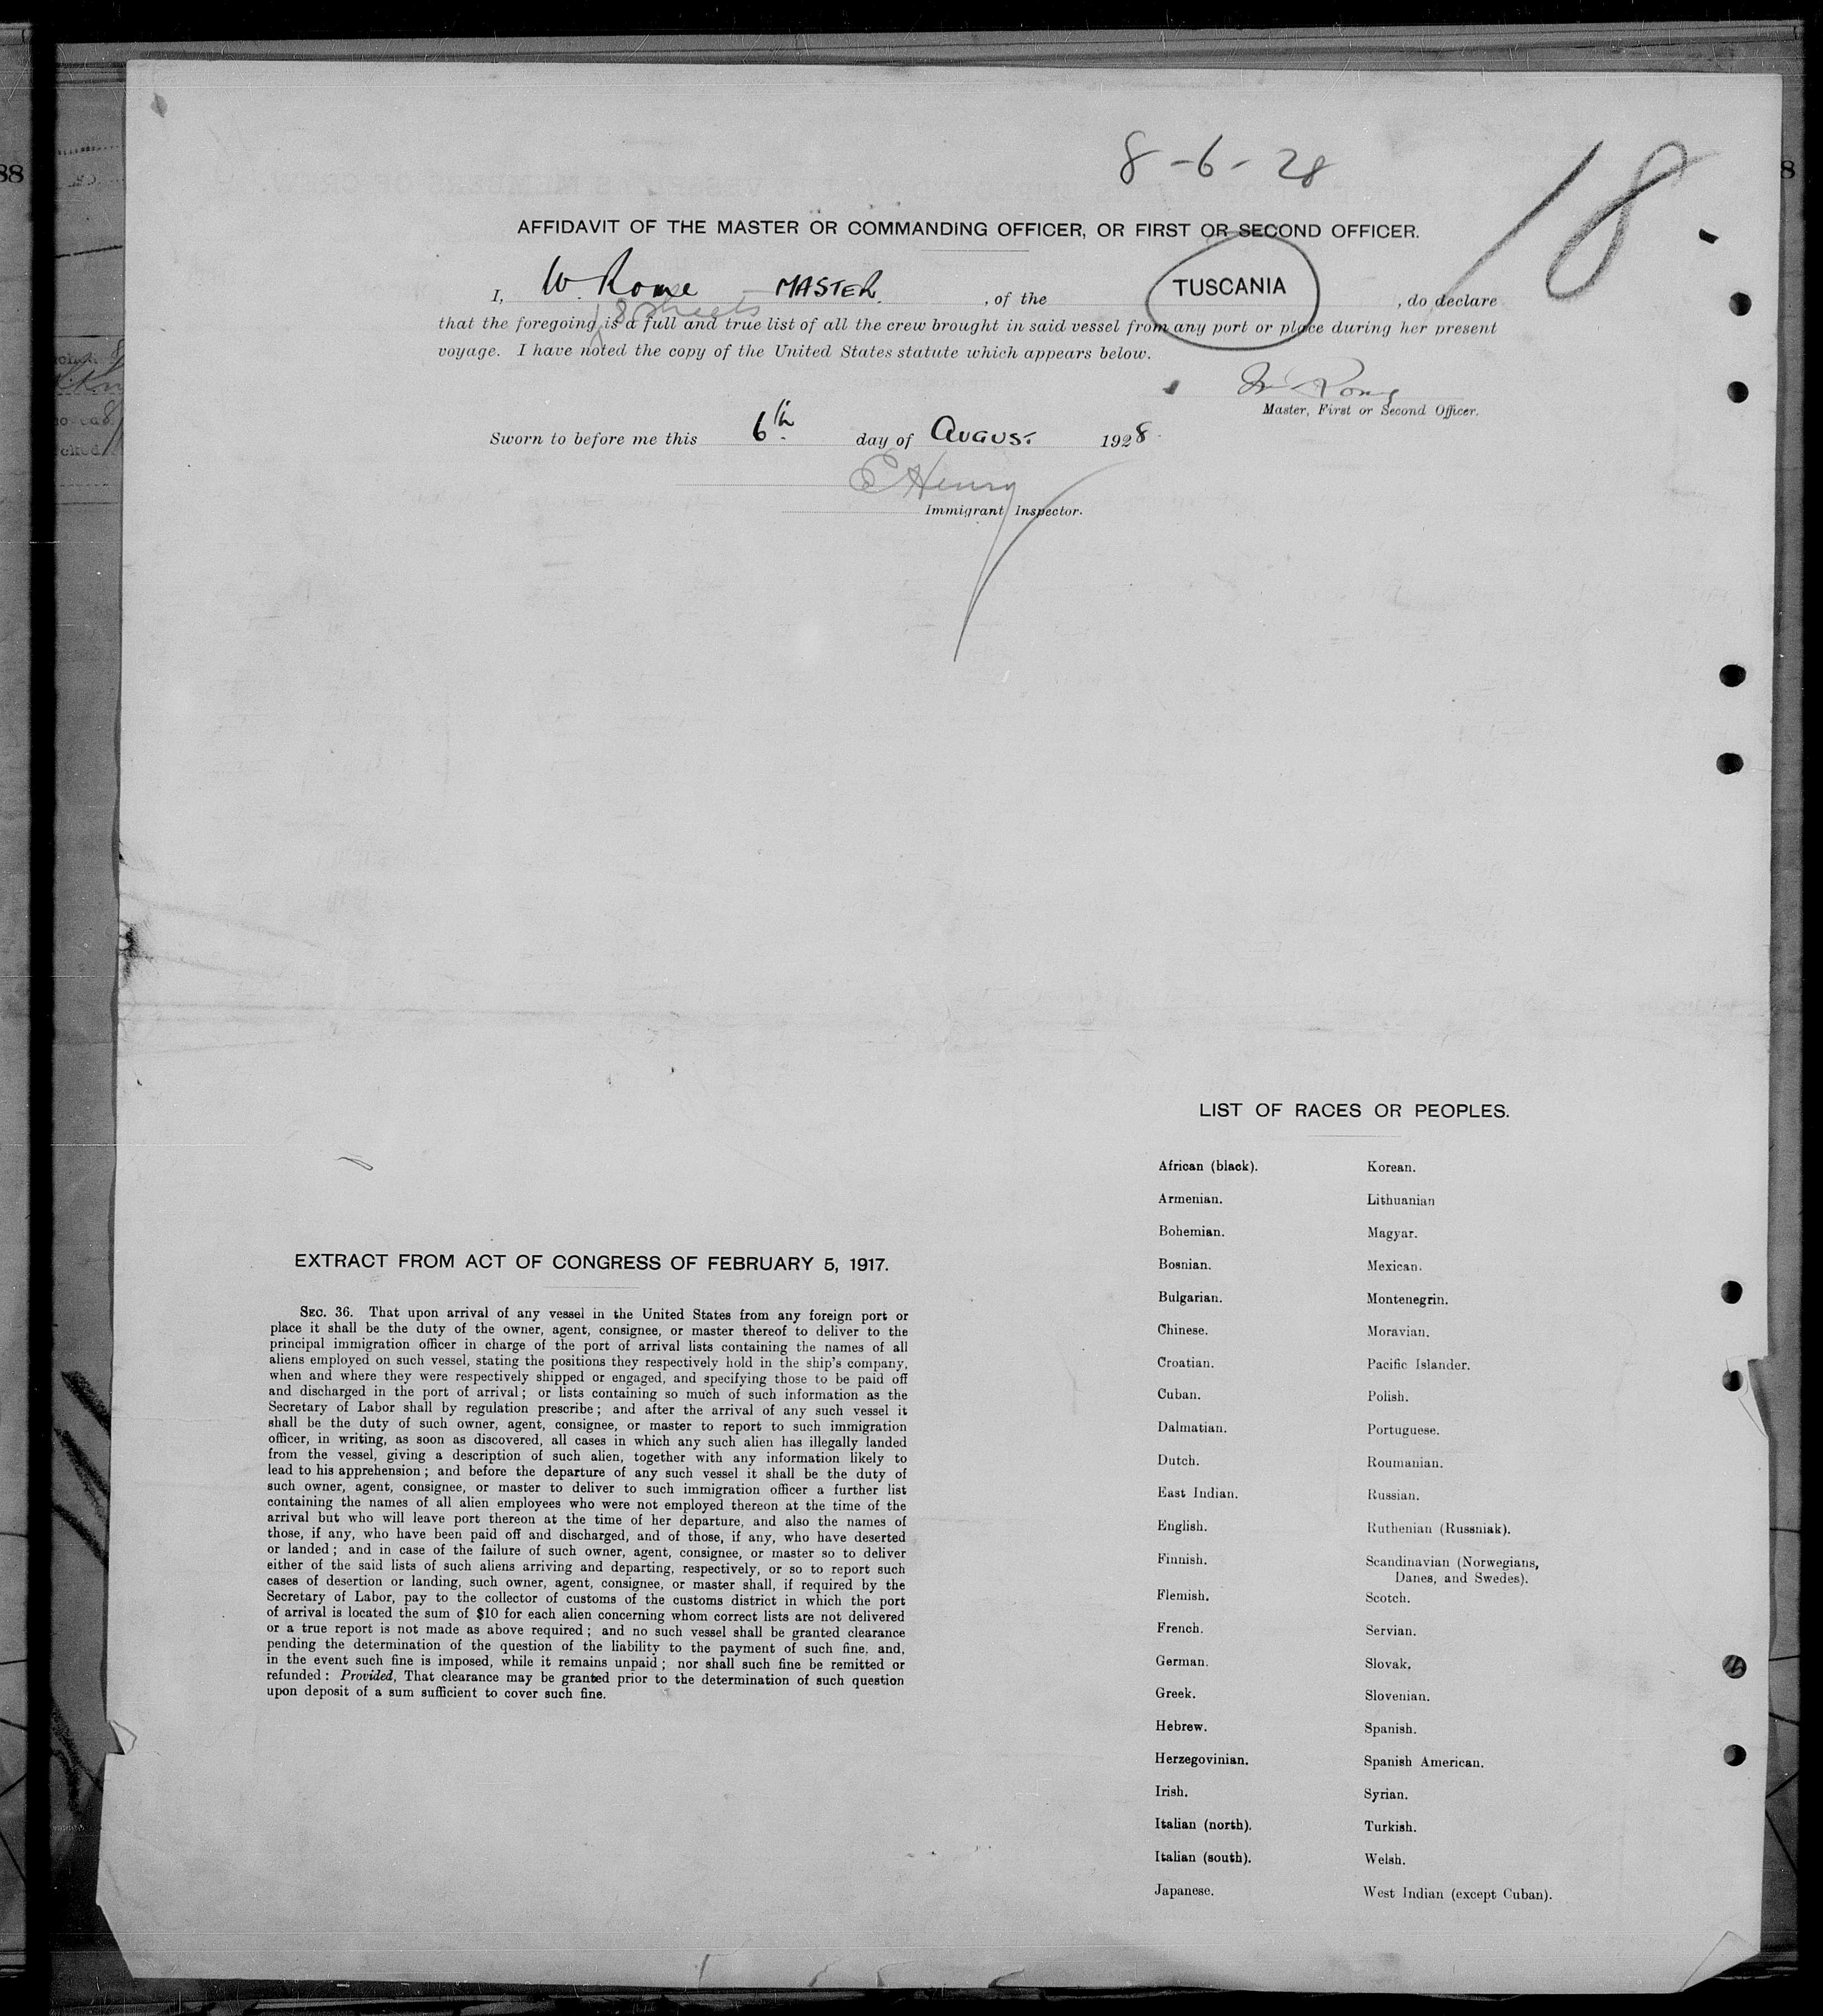 8-6-28
18
AFFIDAVIT OF THE MASTER OR COMMANDING OFFICER, OR FIRST OR SECOND OFFICER.
I, W. Rome MASTER, of the TUSCANIA, do declare
8 sheets
that the foregoing is a full and true list of all the crew brought in said vessel from any port or place during her present
voyage. I have noted the copy of the United States statute which appears below.
Master, First or Second Officer.
Sworn to before me this 6th day of AUGUST 1928
E Henry
Immigrant Inspector.
EXTRACT FROM ACT OF CONGRESS OF FEBRUARY 5, 1917.
SEC. 36. That upon arrival of any vessel in the United States from any foreign port or
place it shall be the duty of the owner, agent, consignee, or master thereof to deliver to the
principal immigration officer in charge of the port of arrival lists containing the names of all
aliens employed on such vessel, stating the positions they respectively hold in the ship's company,
when and where they were respectively shipped or engaged, and specifying those to be paid off
and discharged in the port of arrival; or lists containing so much of such information as the
Secretary of Labor shall by regulation prescribe; and after the arrival of any such vessel it
shall be the duty of such owner, agent, consignee, or master to report to such immigration
officer, in writing, as soon as discovered, all cases in which any such alien has illegally landed
from the vessel, giving a description of such alien, together with any information likely to
lead to his apprehension; and before the departure of any such vessel it shall be the duty of
such owner, agent, consignee, or master to deliver to such immigration officer a further list
containing the names of all alien employees who were not employed thereon at the time of the
arrival but who will leave port thereon at the time of her departure, and also the names of
those, if any, who have been paid off and discharged, and of those, if any, who have deserted
or landed; and in case of the failure of such owner, agent, consignee, or master so to deliver
either of the said lists of such aliens arriving and departing, respectively, or so to report such
cases of desertion or landing, such owner, agent, consignee, or master shall, if required by the
Secretary of Labor, pay to the collector of customs of the customs district in which the port
of arrival is located the sum of $10 for each alien concerning whom correct lists are not delivered
or a true report is not made as above required; and no such vessel shall be granted clearance
pending the determination of the question of the liability to the payment of such fine, and,
in the event such fine is imposed, while it remains unpaid; nor shall such fine be remitted or
refunded: Provided, That clearance may be granted prior to the determination of such question
upon deposit of a sum sufficient to cover such fine.
LIST OF RACES OR PEOPLES.
African (black).
Armenian.
Bohemian.
Bosnian.
Bulgarian.
Chinese.
Croatian.
Cuban.
Dalmatian.
Dutch.
East Indian.
English.
Finnish.
Flemish.
French.
German.
Greek.
Hebrew.
Herzegovinian.
Irish.
Italian (north).
Italian (south).
Japanese.
Korean.
Lithuanian
Magyar.
Mexican.
Montenegrin.
Moravian.
Pacific Islander.
Polish.
Portuguese.
Roumanian.
Russian.
Ruthenian (Russniak).
Scandinavian (Norwegians,
Danes, and Swedes).
Scotch.
Servian.
Slovak.
Slovenian.
Spanish.
Spanish American.
Syrian.
Turkish.
Welsh.
West Indian (except Cuban).